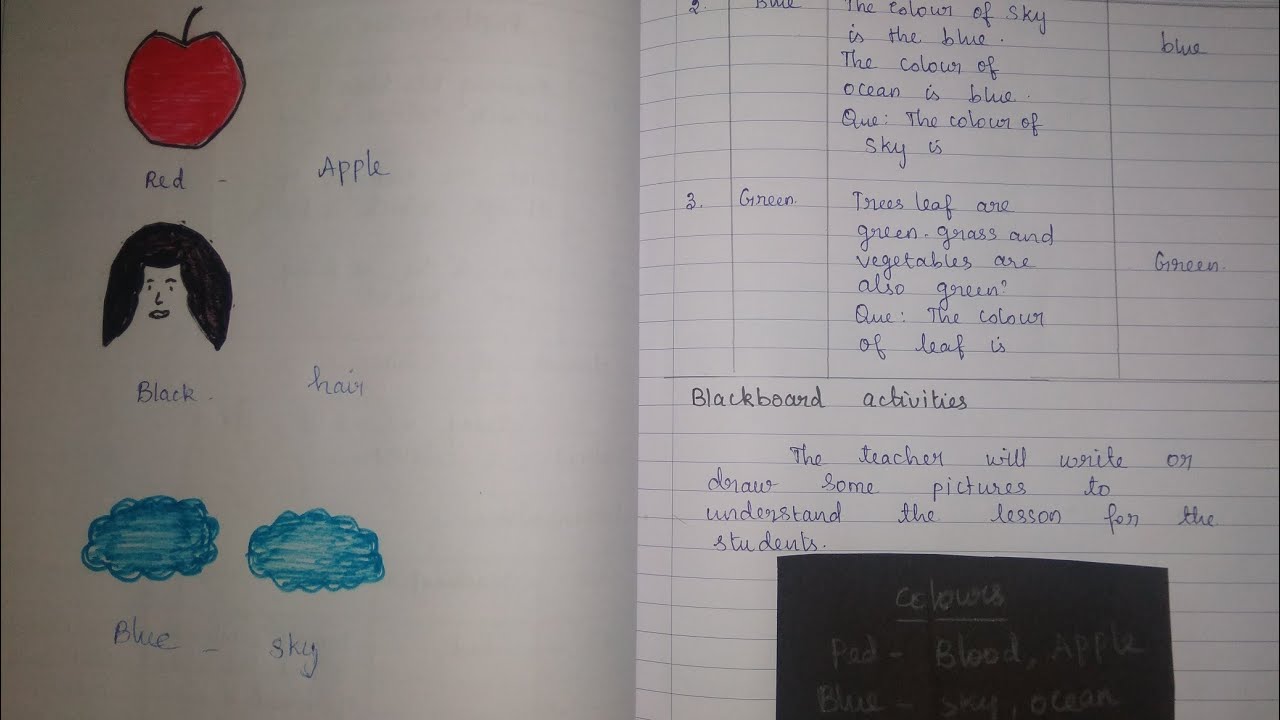 Red - Apple
Black. hair
Blue - Sky
2. Blue The colour of sky
is the blue. blue
The colour of
ocean is blue.
Que: The colour of
sky is
3. Green. Trees leaf are
green. grass and
vegetables are Green.
also green?
Que: The colour
of leaf is
Blackboard activities
The teacher will write or
draw some pictures to
understand the lesson for the
students.
Colours
Red - Blood, Apple
Blue - sky, ocean